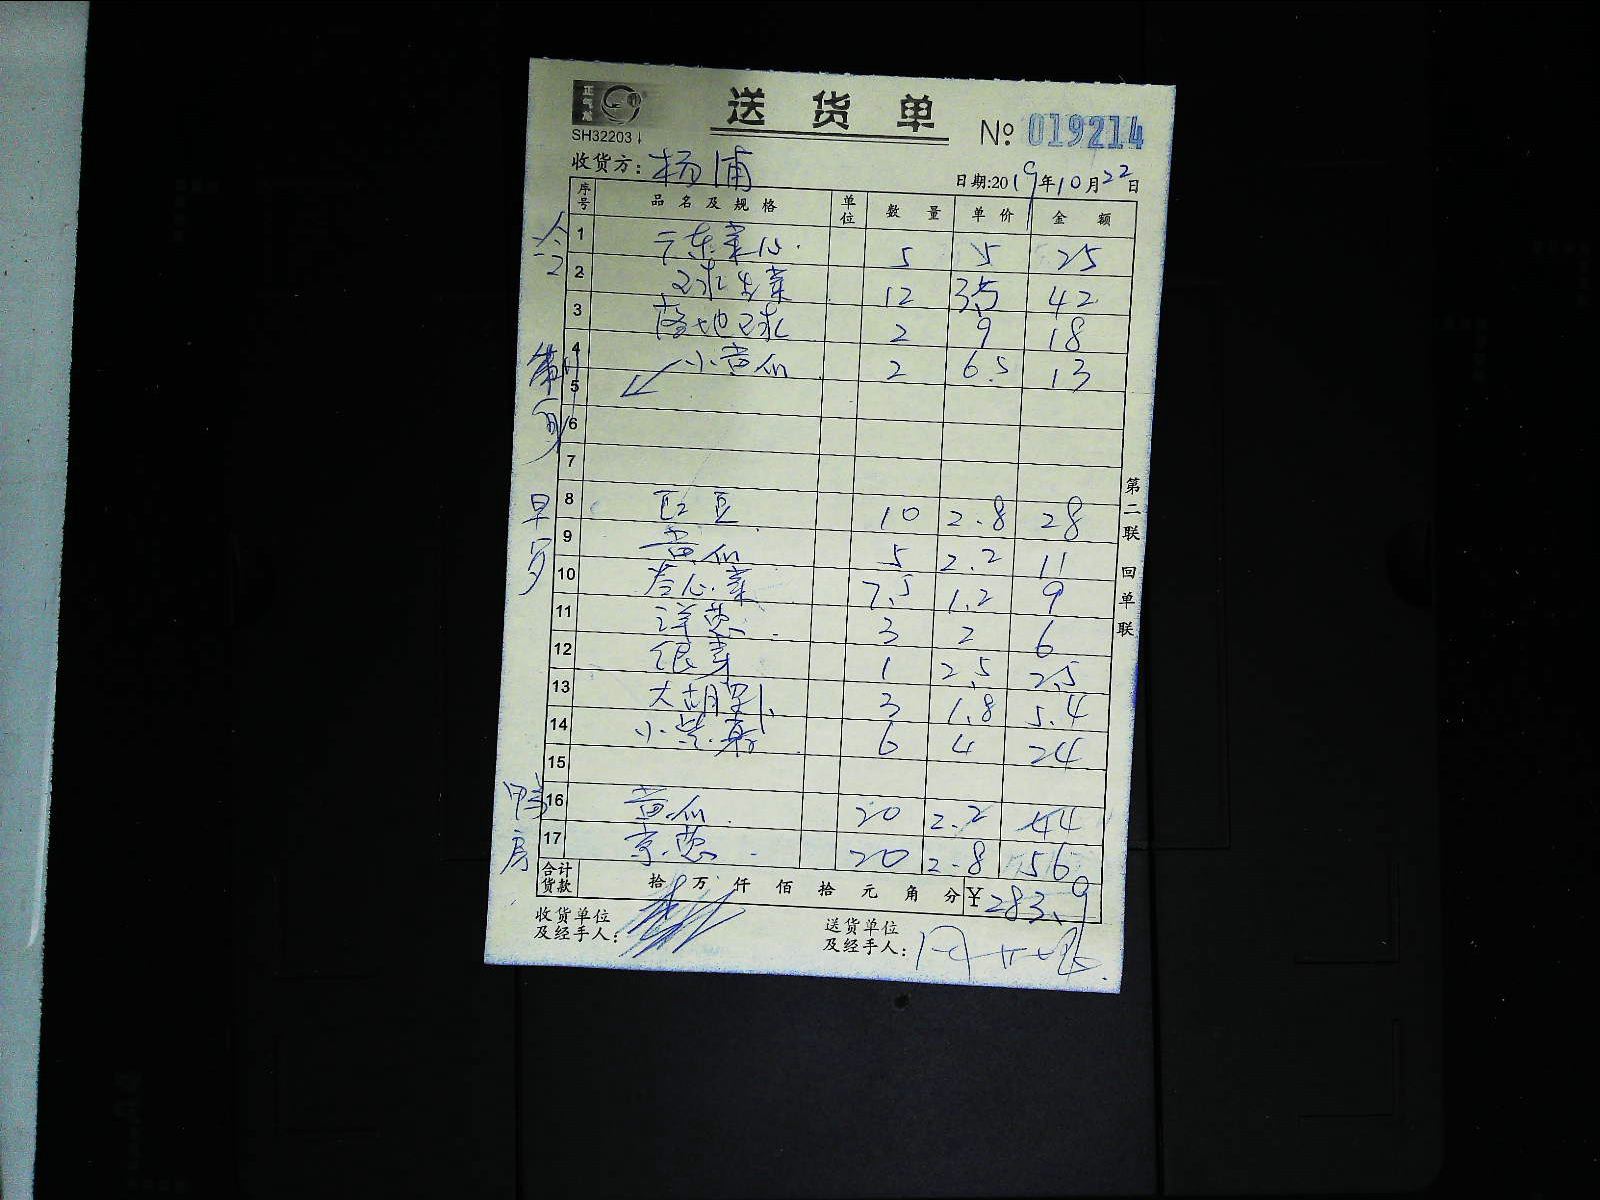 正气龙
SH32203
送货单
No. 019214
收货方: 杨浦
日期:2019年10月22日
序号 品名及规格 单位 数量 单价 金额
1 广东菜心 5 5 25
2 球生菜 12 3.5 42
3 落地球 2 9 18
4 小黄瓜 2 6.5 13
5
6
7
8 豇豆 10 2.8 28
9 黄瓜 5 2.2 11
10 卷心菜 7.5 1.2 9
11 洋葱 3 2 6
12 银芽 1 2.5 2.5
13 大胡萝卜 3 1.8 5.4
14 小紫茄 6 4 24
15
16 黄瓜 20 2.2 44
17 京葱 20 2.8 56
早
鸭房
合计货款 拾万仟佰拾元角分 ¥283.9
收货单位及经手人:
送货单位及经手人:
第二联 回单联